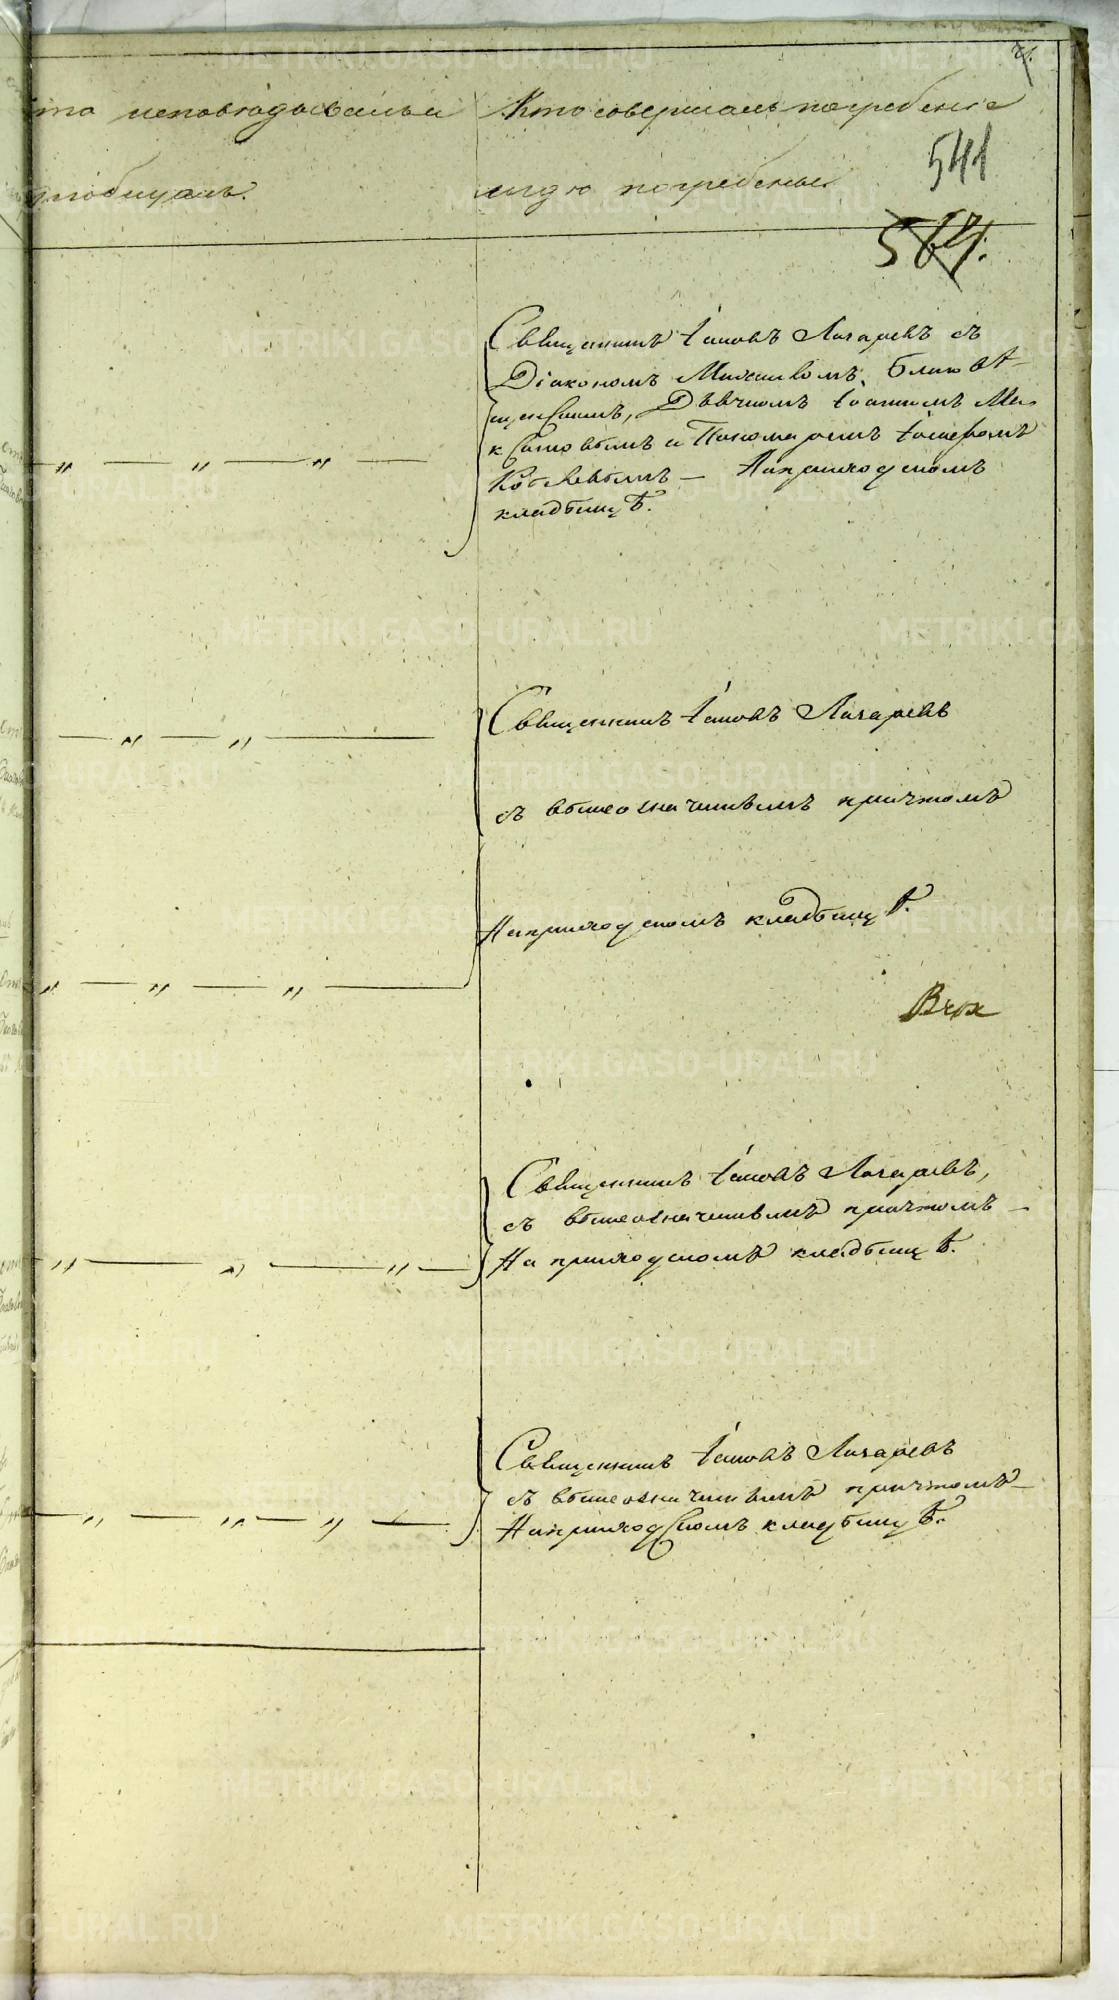 Кто исповѣдывалъ и
Кто совершалъ погребенiе
541
приобщалъ.
и гдѣ погребены.
567.
Священникъ Iаковъ Лагаревъ съ
Дiакономъ Михаиломъ Благовѣ-
щенскимъ, Дьячкомъ Iоанномъ Ма-
ксимовымъ и Пономаремъ Iосифомъ
На приходскомъ
кладбищѣ.
Священникъ Iаковъ Лагаревъ
съ вышеозначеннымъ причтомъ
На приходскомъ кладбищѣ.
Священникъ Iаковъ Лагаревъ,
съ вышеозначеннымъ причтомъ –
На приходскомъ кладбищѣ.
Священникъ Iаковъ Лагаревъ
съ вышеозначеннымъ причтомъ –
На приходскомъ кладбищѣ.
METRIKI.GASO-URAL.RU